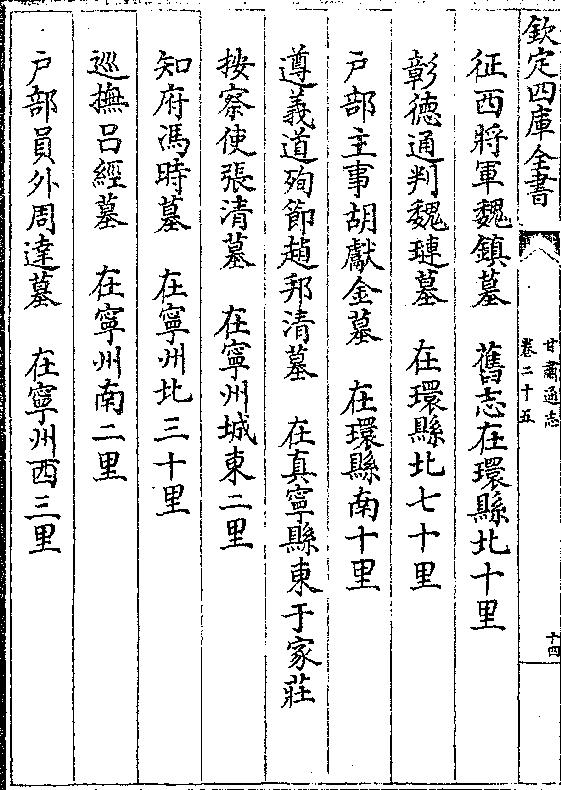 欽定四庫全書
甘肅通志
卷二十五
十四
征西將軍魏鎮墓　舊志在環縣北十里
彰德通判魏璉墓　在環縣北七十里
戸部主事胡獻金墓　在環縣南十里
遵義道殉節趙邦清墓　在真寧縣東于家莊
按察使張清墓　在寧州城東二里
知府馮時墓　在寧州北三十里
巡撫吕經墓　在寧州南二里
戸部員外周達墓　在寧州西三里